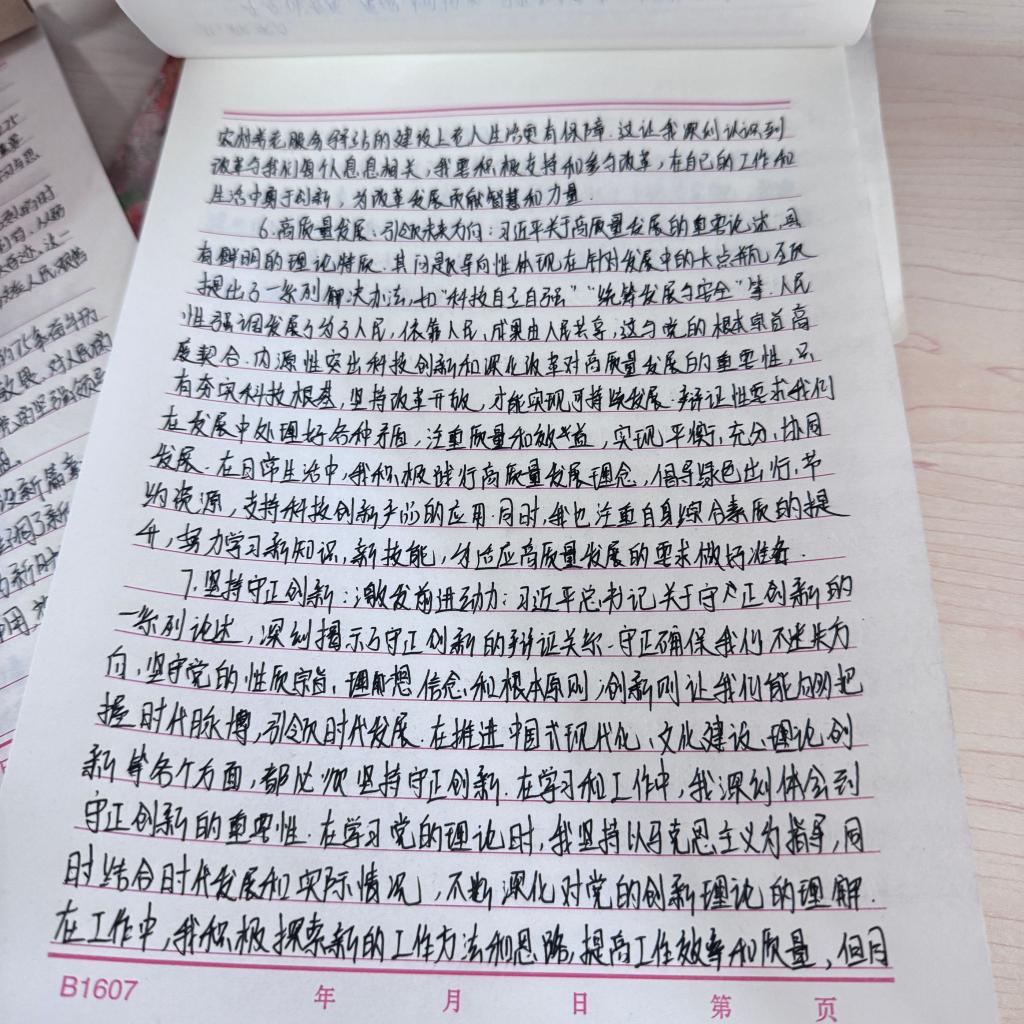 农村养老服务驿站的建设上老人生活更有保障.这让我深刻认识到
改革与我们每个人息息相关,我要积极支持和参与改革,在自己的工作和
生活中勇于创新,为改革发展贡献智慧和力量.
6.高质量发展:引领未来方向:习近平关于高质量发展的重要论述,具
有鲜明的理论特质.其问题导向性体现在针对发展中的卡点瓶颈
提出了一系列解决办法,如“科技自立自强”“统筹发展与安全”等.人民
性强调发展了为了人民,依靠人民,成果由人民共享,这与党的根本宗旨高
度契合.内源性突出科技创新和深化改革对高质量发展的重要性,只
有夯实科技根基,坚持改革开放,才能实现可持续发展.辩证性要求我们
在发展中处理好各种矛盾,注重质量和效益,实现平衡,充分,协同
发展.在日常生活中,我积极践行高质量发展理念,倡导绿色出行,节
约资源,支持科技创新产品的应用.同时,我也注重自身综合素质的提
升,努力学习新知识,新技能,为适应高质量发展的要求做好准备.
7.坚持守正创新:激发前进动力:习近平总书记关于守正创新的
一系列论述,深刻揭示了守正创新的辩证关系.守正确保我们不迷失方
向,坚守党的性质宗旨,理想信念,和根本原则;创新则让我们能够把
握时代脉搏,引领时代发展.在推进中国式现代化、文化建设、理论创
新等各个方面,都必须坚持守正创新.在学习和工作中,我深刻体会到
守正创新的重要性.在学习党的理论时,我坚持以马克思主义为指导,同
时结合时代发展和实际情况,不断深化对党的创新理论的理解.
在工作中,我积极探索新的工作方法和思路,提高工作效率和质量,但同
B1607 年 月 日 第 页